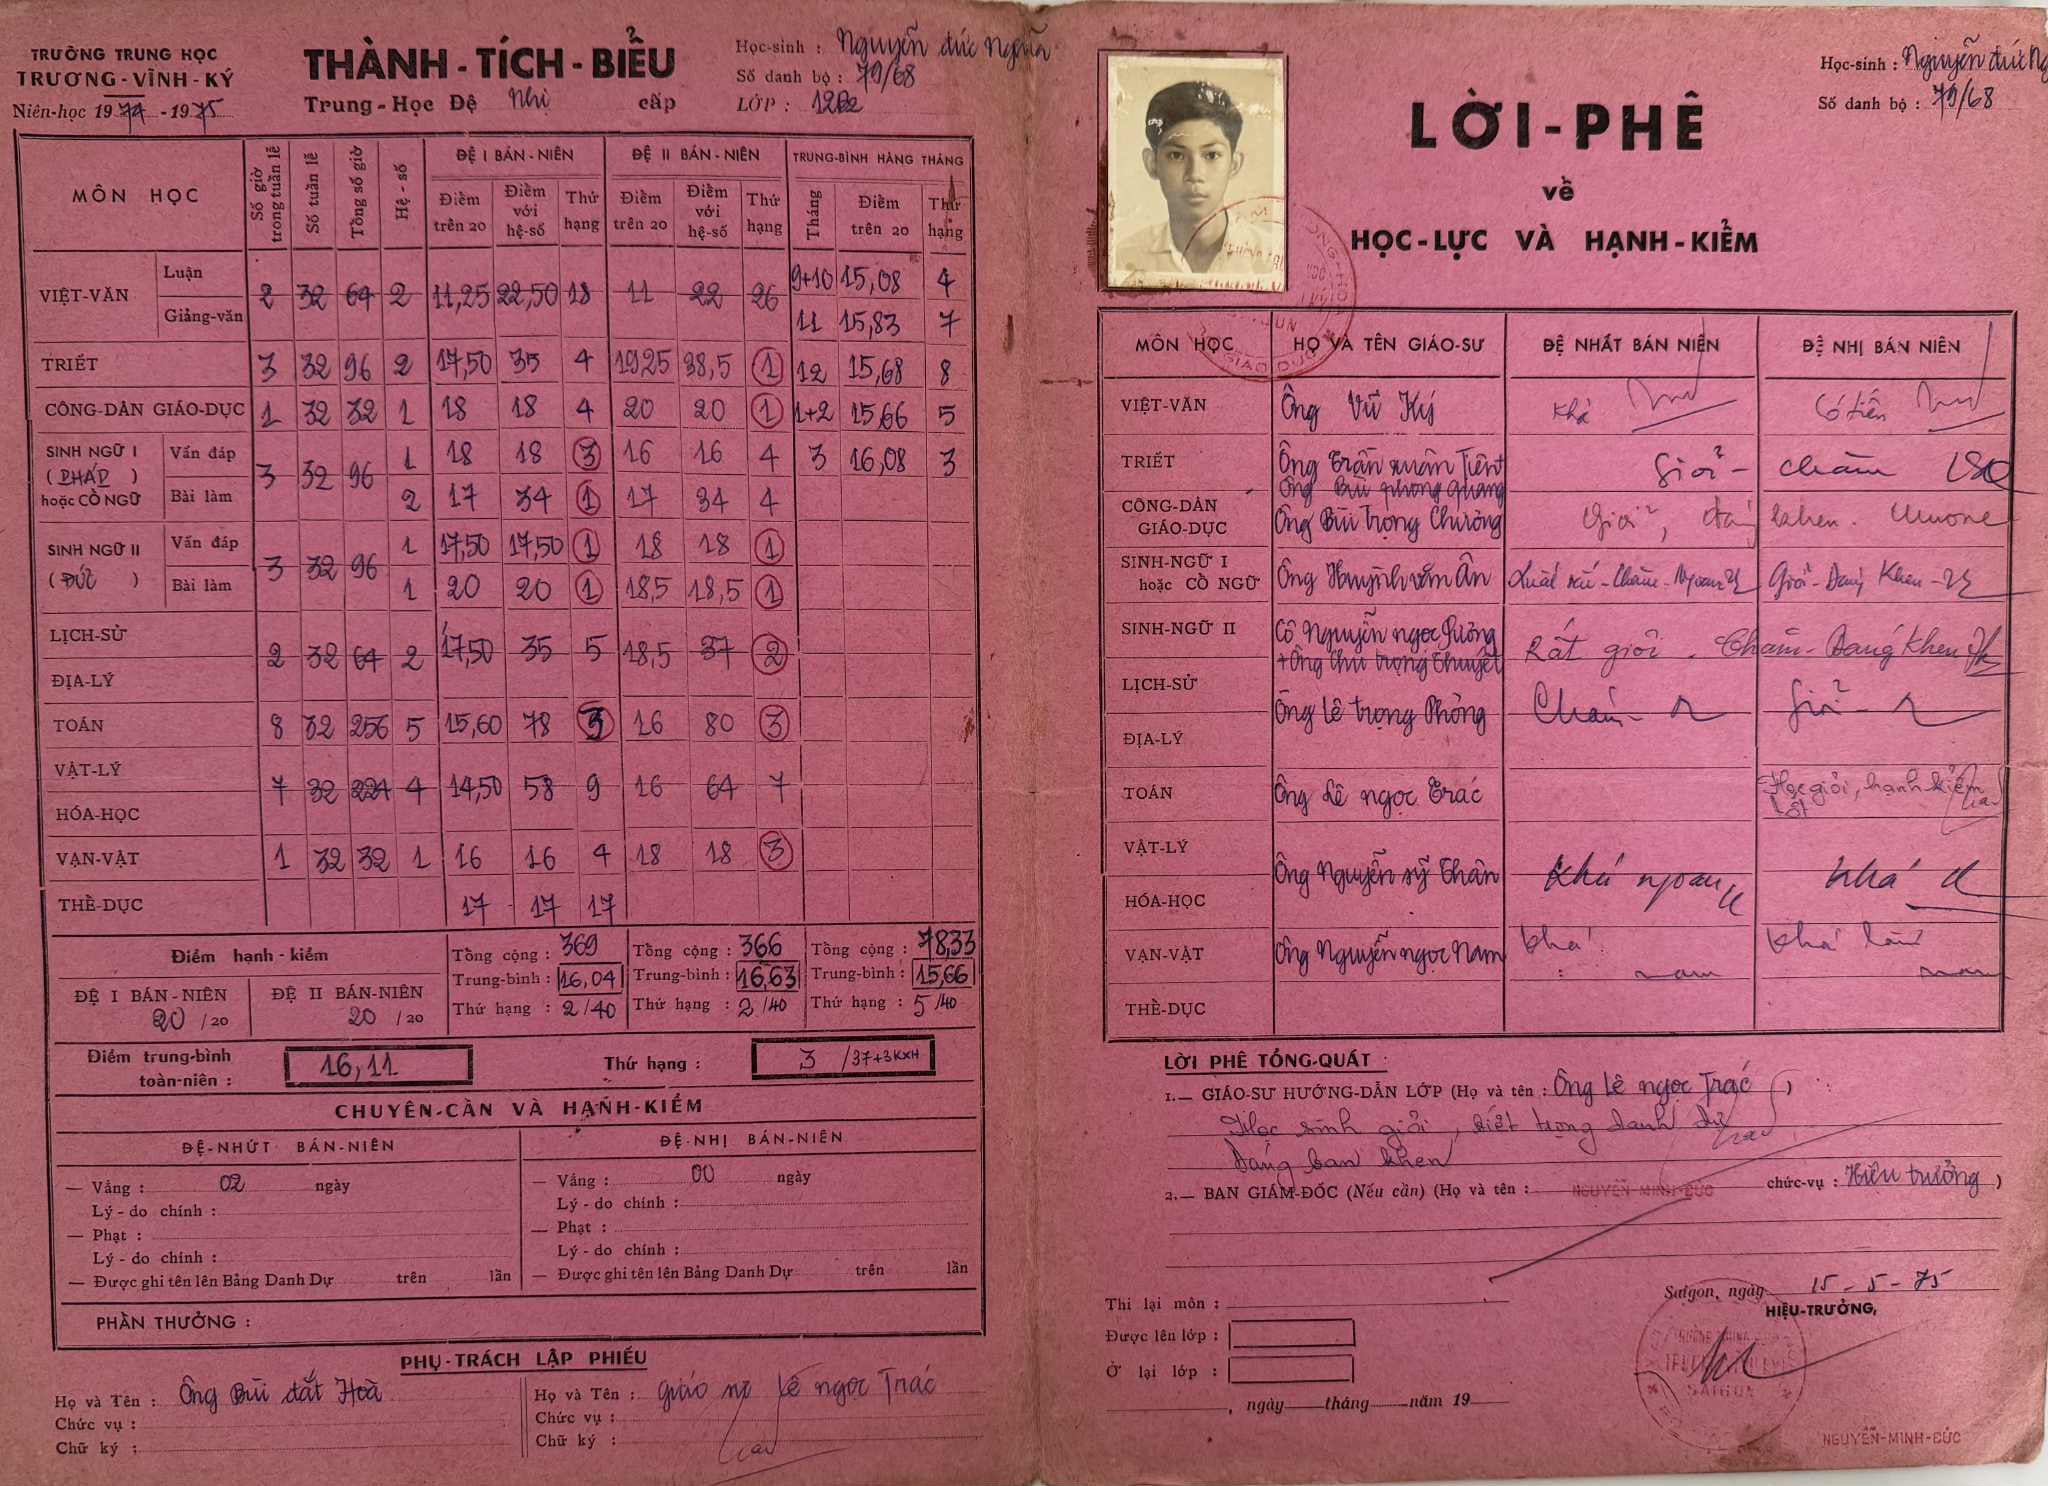 TRƯỜNG TRUNG HỌC
TRƯƠNG-VĨNH-KÝ
Niên-học 1974 - 1975
THÀNH-TÍCH-BIỂU
Trung-Học Đệ Nhị cấp
Học-sinh : Nguyễn đức Nghĩa
Số danh bộ : 79/68
LỚP : 12B2
MÔN HỌC
Số giờ trong tuần lễ
Số tuần lễ
Tổng số giờ
Hệ-số
ĐỆ I BÁN-NIÊN
ĐỆ II BÁN-NIÊN
TRUNG-BÌNH HÀNG THÁNG
Điểm trên 20 Điểm với hệ-số Thứ hạng Điểm trên 20 Điểm với hệ-số Thứ hạng Tháng Điểm trên 20 Thứ hạng
VIỆT-VĂN Luận Giảng-văn 2 32 64 2 11,25 22,50 18 11 22 26
9+10 15,08 4
11 15,83 7
TRIẾT 3 32 96 2 17,50 35 4 19,25 38,5 1 12 15,68 8
CÔNG-DÂN GIÁO-DỤC 1 32 32 1 18 18 4 20 20 1 1+2 15,66 5
SINH NGỮ I (PHÁP) hoặc CỔ NGỮ 3 32 96
Vấn đáp 1 18 18 3 16 16 4 3 16,08 3
Bài làm 2 17 34 1 17 34 4
SINH NGỮ II (ĐỨC) 3 32 96
Vấn đáp 1 17,50 17,50 1 18 18 1
Bài làm 1 20 20 1 18,5 18,5 1
LỊCH-SỬ
ĐỊA-LÝ
2 32 64 2 17,50 35 5 18,5 37 2
TOÁN 8 32 256 5 15,60 78 3 16 80 3
VẬT-LÝ
HÓA-HỌC
7 32 224 4 14,50 58 9 16 64 7
VẠN-VẬT 1 32 32 1 16 16 4 18 18 3
THỂ-DỤC 17 17 17
Điểm hạnh-kiểm
ĐỆ I BÁN-NIÊN ĐỆ II BÁN-NIÊN
20 /20 20 /20
Tổng cộng : 369 Tổng cộng : 366 Tổng cộng : 78,33
Trung-bình : 16,04 Trung-bình : 16,63 Trung-bình : 15,66
Thứ hạng : 2/40 Thứ hạng : 2/40 Thứ hạng : 5/40
Điểm trung-bình toàn-niên : 16,11 Thứ hạng : 3 /37+3KXH
CHUYÊN-CẦN VÀ HẠNH-KIỂM
ĐỆ-NHỨT BÁN-NIÊN
— Vắng : 02 ngày
Lý-do chính :
— Phạt :
Lý-do chính :
— Được ghi tên lên Bảng Danh Dự trên lần
ĐỆ-NHỊ BÁN-NIÊN
— Vắng : 00 ngày
Lý-do chính :
— Phạt :
Lý-do chính :
— Được ghi tên lên Bảng Danh Dự trên lần
PHẦN THƯỞNG :
PHỤ-TRÁCH LẬP PHIẾU
Họ và Tên : Ông Bùi đắt Hoà
Chức vụ :
Chữ ký :
Họ và Tên : giáo sư Lê ngọc Trác
Chức vụ :
Chữ ký :
Học-sinh : Nguyễn đức Ng
Số danh bộ : 79/68
LỜI-PHÊ
về
HỌC-LỰC VÀ HẠNH-KIỂM
MÔN HỌC HỌ VÀ TÊN GIÁO-SƯ ĐỆ NHẤT BÁN NIÊN ĐỆ NHỊ BÁN NIÊN
VIỆT-VĂN Ông Vũ Ký Khá Có tiến
TRIẾT Ông Trần xuân Tiên + Ông Bùi phong Quang Giỏi - chăm
CÔNG-DÂN GIÁO-DỤC Ông Bùi trọng Chương Giỏi, đáng khen.
SINH-NGỮ I hoặc CỔ NGỮ Ông Huỳnh văn Ân Xuất sắc - Chăm - Ngoan Giỏi - Đáng Khen
SINH-NGỮ II Cô Nguyễn ngọc Sương + Ông Chu trọng Thuyết Rất giỏi. Chăm - Đáng khen
LỊCH-SỬ
ĐỊA-LÝ
Ông Lê trọng Phỏng Chăm Giỏi
TOÁN Ông Lê ngọc Trác Học giỏi, hạnh kiểm tốt
VẬT-LÝ
HÓA-HỌC
Ông Nguyễn sỹ Thân Khá ngoan Khá
VẠN-VẬT Ông Nguyễn ngọc Nam Khá Khá lắm
THỂ-DỤC
LỜI PHÊ TỔNG-QUÁT
1.— GIÁO-SƯ HƯỚNG-DẪN LỚP (Họ và tên : Ông Lê ngọc Trác )
Học sinh giỏi, biết trọng danh dự
Đáng ban khen
2.— BAN GIÁM-ĐỐC (Nếu cần) (Họ và tên : NGUYỄN-MINH-ĐỨC chức-vụ : Hiệu trưởng )
Thi lại môn :
Được lên lớp :
Ở lại lớp :
, ngày tháng năm 19
Saigon, ngày 15-5-75
HIỆU-TRƯỞNG,
SAIGON
NGUYỄN-MINH-ĐỨC